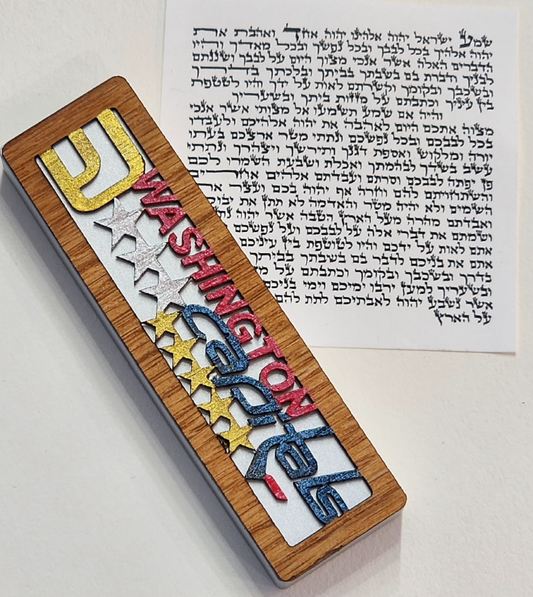 ש
WASHINGTON
Capitals
שמע ישראל יהוה אלהינו יהוה אחד ואהבת את
יהוה אלהיך בכל לבבך ובכל נפשך ובכל מאדך והיו
הדברים האלה אשר אנכי מצוך היום על לבבך ושננתם
לבניך ודברת בם בשבתך בביתך ובלכתך בדרך
ובשכבך ובקומך וקשרתם לאות על ידך והיו לטטפת
בין עיניך וכתבתם על מזזות ביתך ובשעריך
והיה אם שמע תשמעו אל מצותי אשר אנכי
מצוה אתכם היום לאהבה את יהוה אלהיכם ולעבדו
בכל לבבכם ובכל נפשכם ונתתי מטר ארצכם בעתו
יורה ומלקוש ואספת דגנך ותירשך ויצהרך ונתתי
עשב בשדך לבהמתך ואכלת ושבעת השמרו לכם
פן יפתה לבבכם וסרתם ועבדתם אלהים
והשתחויתם להם וחרה אף יהוה בכם ועצר את
השמים ולא יהיה מטר והאדמה לא תתן את
ואבדתם מהרה מעל הארץ הטבה אשר יהוה
ושמתם את דברי אלה על לבבכם ועל נפשכם
אתם לאות על ידכם והיו לטוטפת בין עיניכם
אתם את בניכם לדבר בם בשבתך בביתך
בדרך ובשכבך ובקומך וכתבתם על
ובשעריך למען ירבו ימיכם וימי בניכם
אשר נשבע יהוה לאבתיכם לתת להם
על הארץ